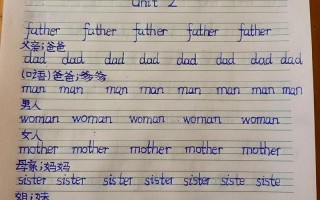 Unit 2
father father father father father
父亲;爸爸
dad dad dad dad dad dad dad
(口语)爸爸;爹爹
man man man man man man man
男人
woman woman woman woman woman
女人
mother mother mother mother mother
母亲;妈妈
sister sister sister sister sister siste siste
姐;妹